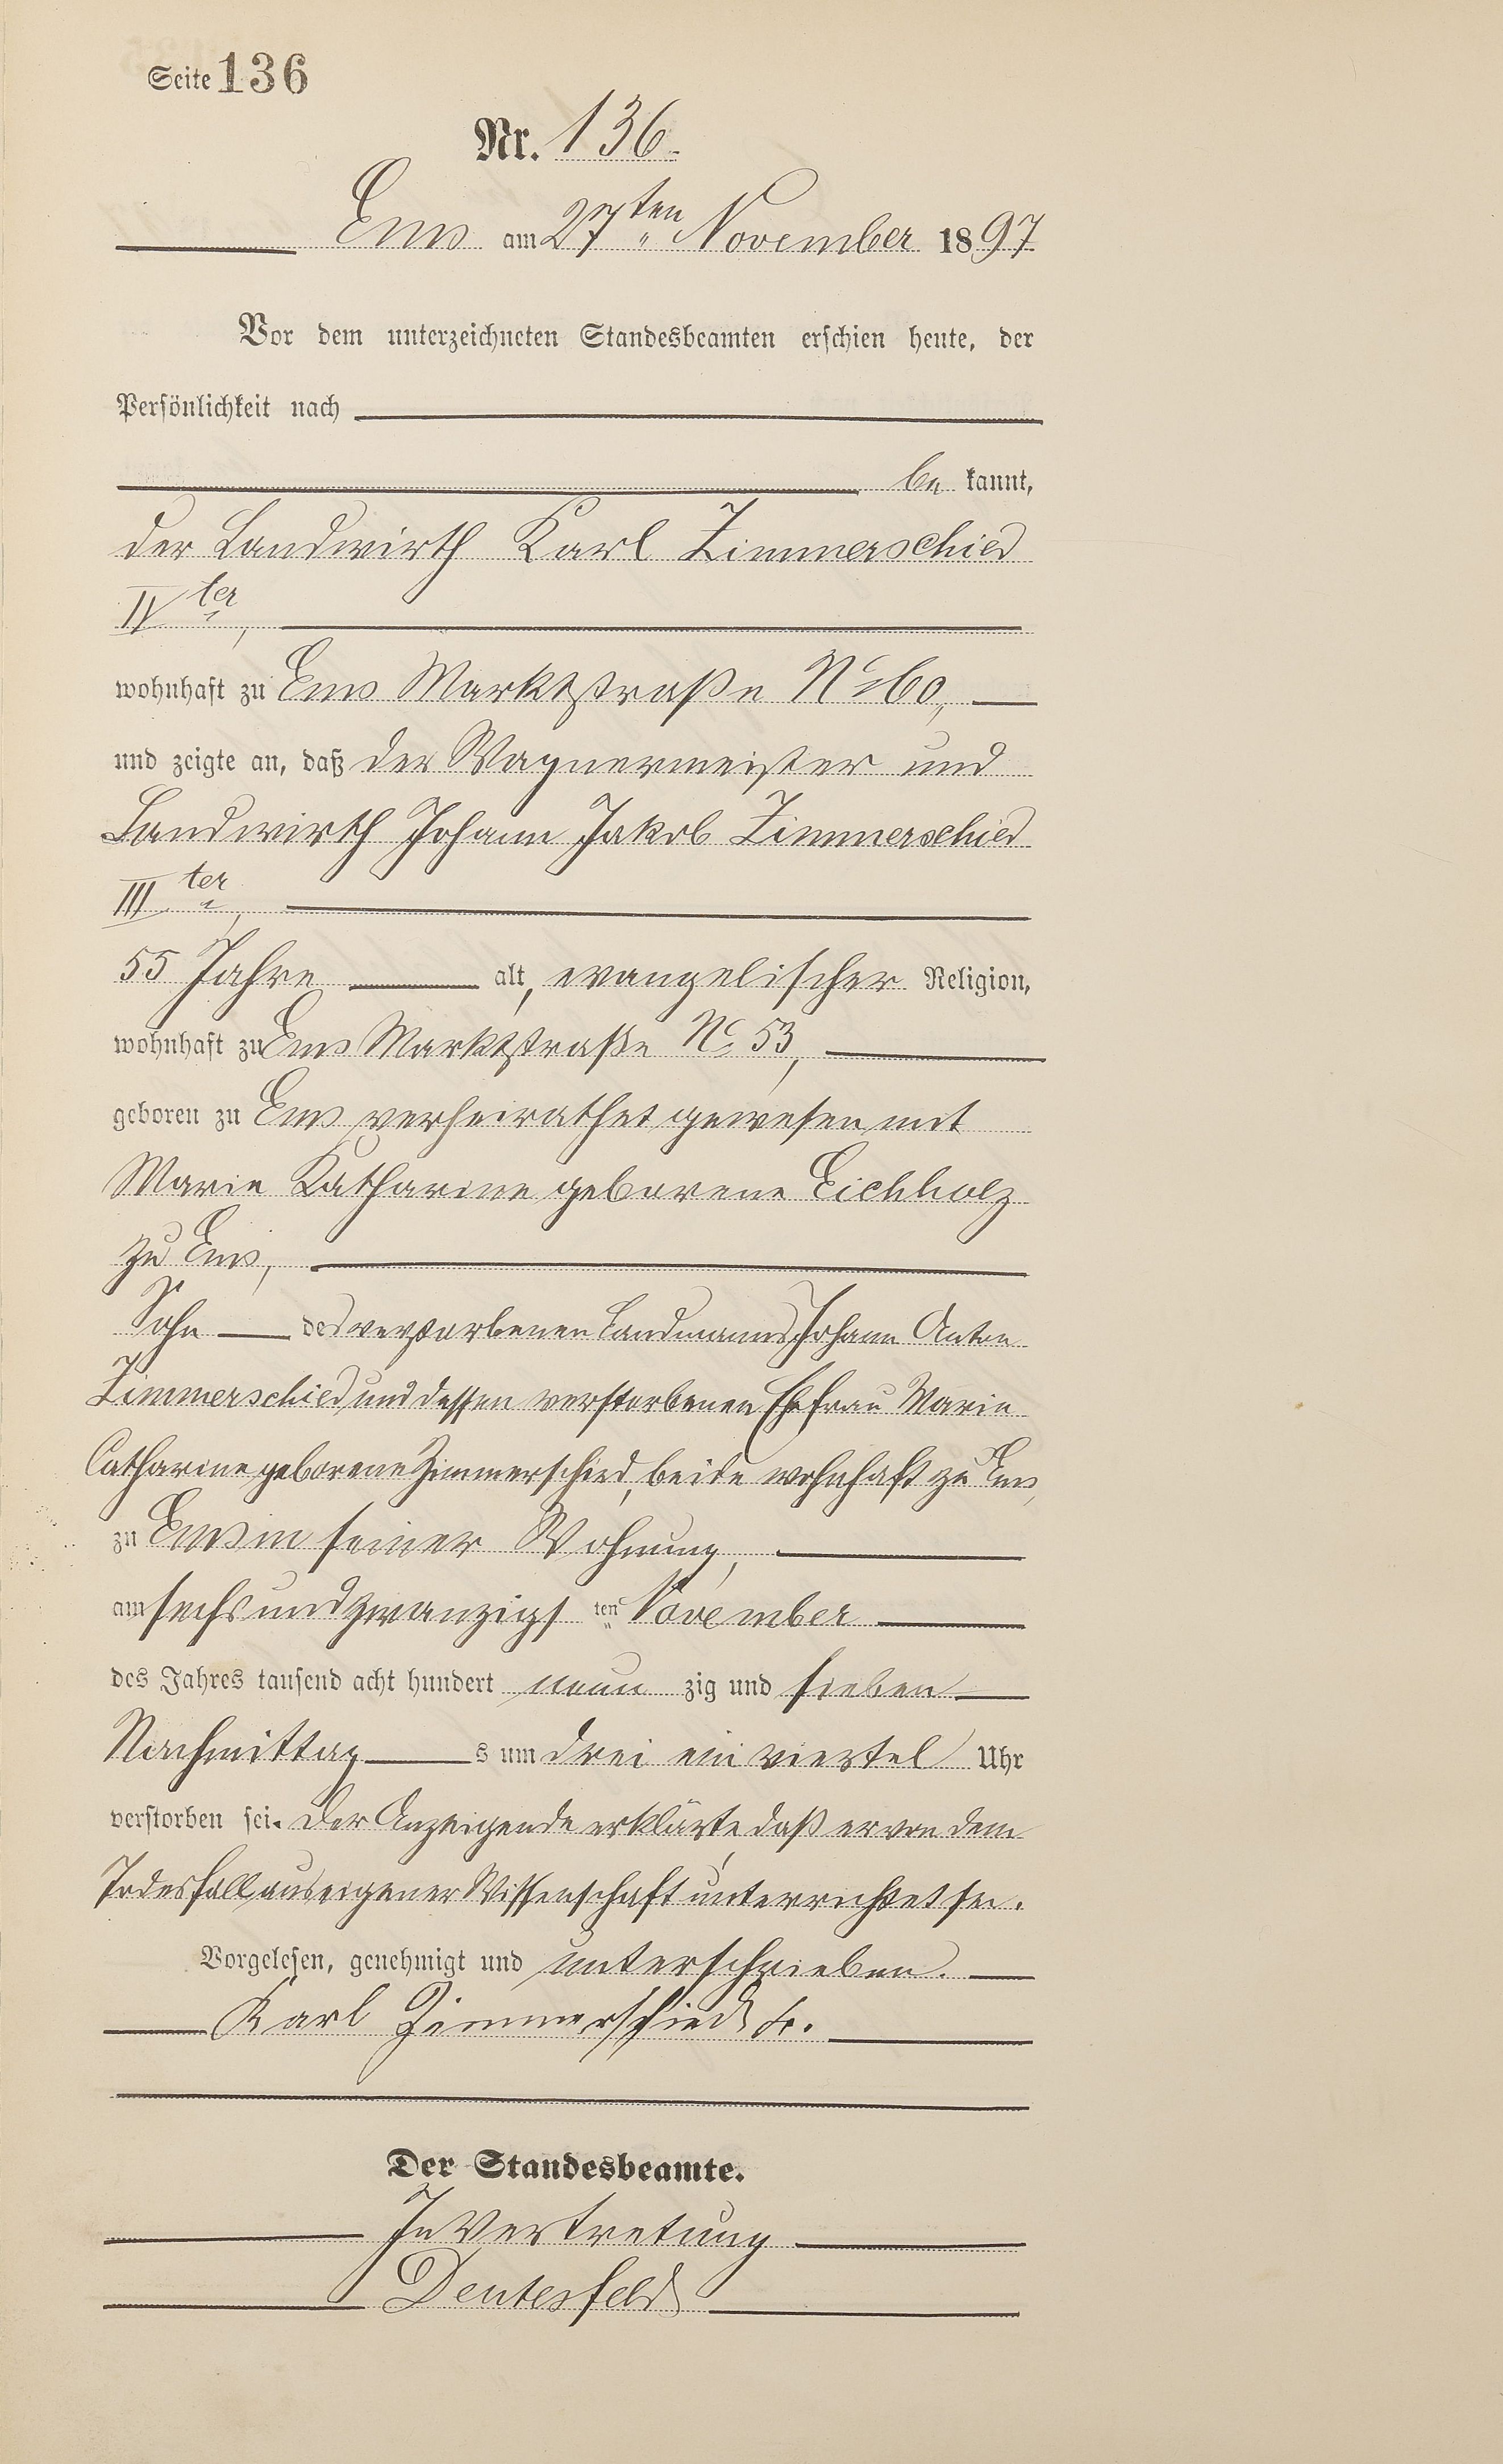 Seite 136
Nr. 136.
Ems am 27ten November 1897
Vor dem unterzeichneten Standesbeamten erschien heute, der
Persönlichkeit nach
be kannt,
der Landwirth Karl Zimmerschied
IVter,
wohnhaft zu Ems Marktstraße No 60,
und zeigte an, daß der Wagnermeister und
Landwirth Johann Jakob Zimmerschied
IIIter,
55 Jahre alt, evangelischer Religion,
wohnhaft zu Ems Marktstraße No 53,
geboren zu Ems, verheirathet gewesen mit
Marie Katharine geborene Eichholz
zu Ems,
Sohn des verstorbenen Landmanns Johann Anton
Zimmerschied und dessen verstorbenen Ehefrau Marie
Catharine geborene Zimmerschied, beide wohnhaft zu Ems,
zu Ems in seiner Wohnung,
am sechsundzwanzigs ten November
des Jahres tausend acht hundert neun zig und sieben
Nachmittag s um drei ein viertel Uhr
verstorben sei. Der Anzeigende erklärte, daß er von dem
Todesfall aus eigener Wissenschaft unterrichtet sei.
Vorgelesen, genehmigt und unterschrieben.
Karl Zimmerschied
Der Standesbeamte.
In Vertretung
Deutesfeld